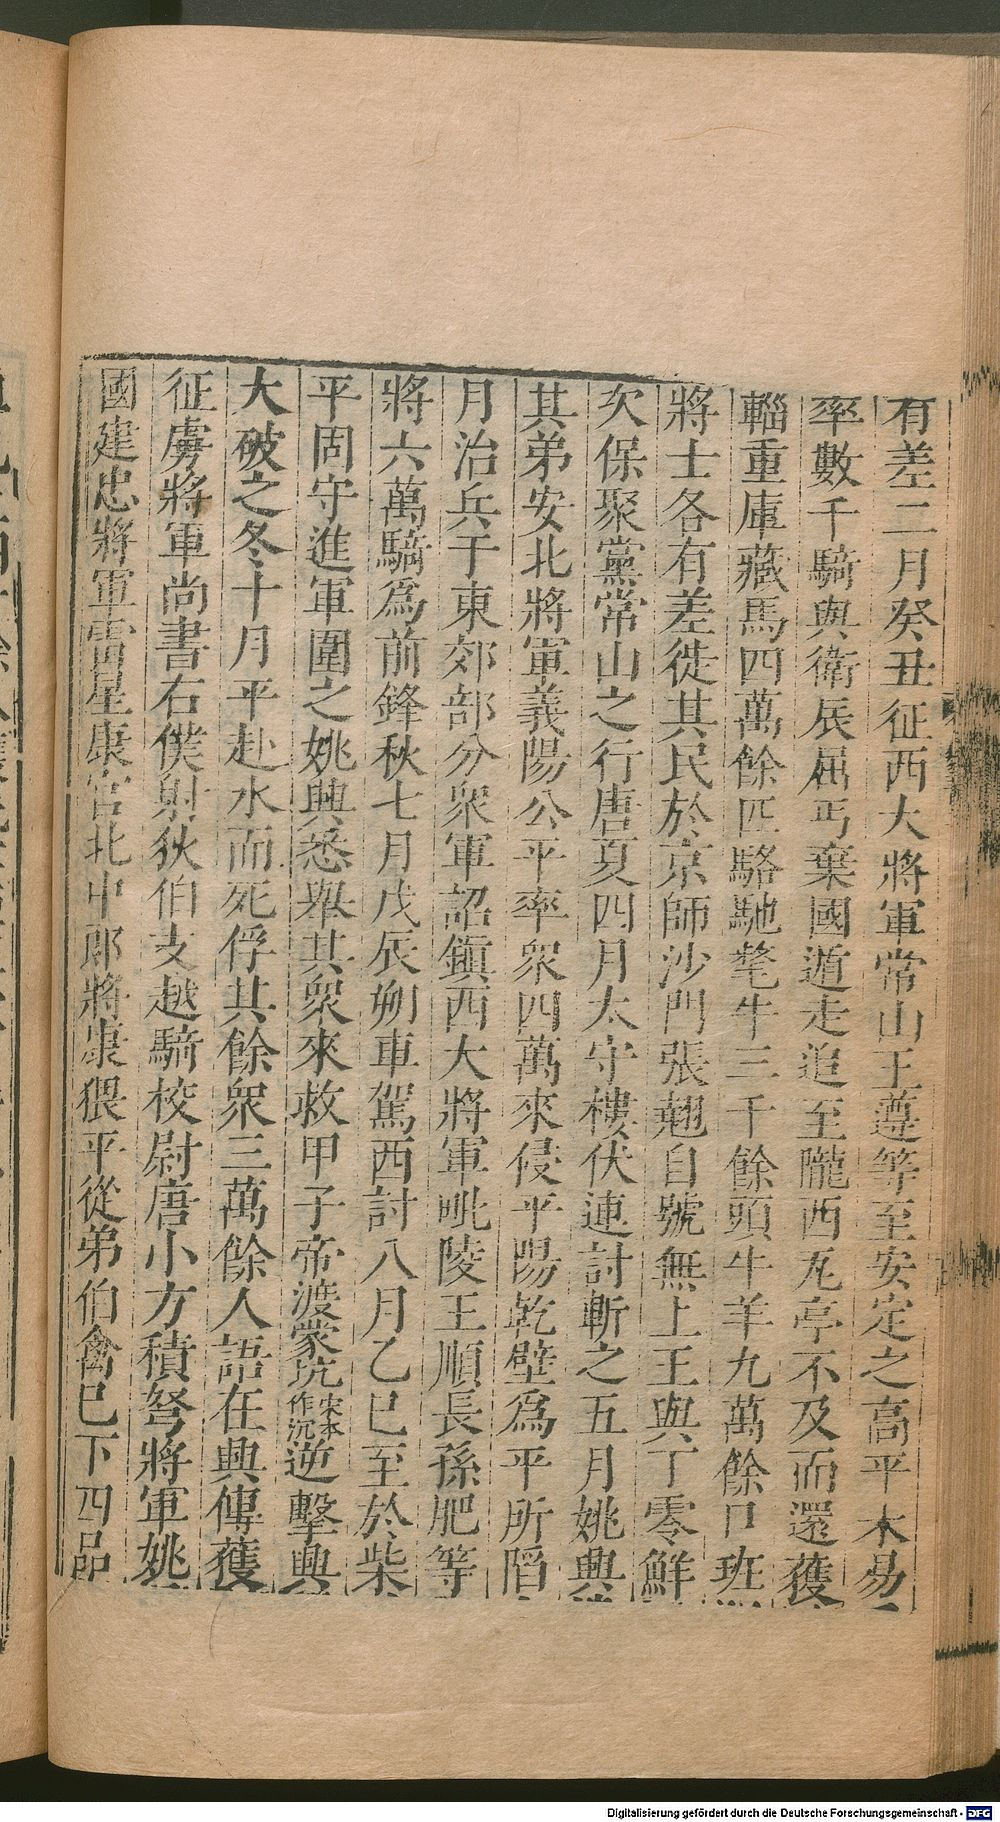 有差二月癸丑征西大將軍常山王遵等至安定之高平木易
率數千騎與衛辰屈丐棄國遁走追至隴西瓦亭不及而還獲
輜重庫藏馬四萬餘匹駱馳氂牛三千餘頭牛羊九萬餘口班
將士各有差徙其民於京師沙門張翹自號無上王與丁零鮮
次保聚黨常山之行唐夏四月太守樓伏連討斬之五月姚興
其弟安北將軍義陽公平率衆四萬來侵平陽乾壁爲平所陷
月治兵于東郊部分衆軍詔鎭西大將軍毗陵王順長孫肥等
將六萬騎爲前鋒秋七月戊辰朔車駕西討八月乙巳至於柴
平固守進軍圍之姚興悉舉其衆來救甲子帝渡蒙坑宋本作沉逆擊興
大破之冬十月平赴水而死俘其餘衆三萬餘人語在興傳獲
征虜將軍尚書右僕射狄伯支越騎校尉唐小方積弩將軍姚
國建忠將軍雷星康官北中郎將康猥平從弟伯禽已下四品
Digitalisierung gefördert durch die Deutsche Forschungsgemeinschaft - DFG